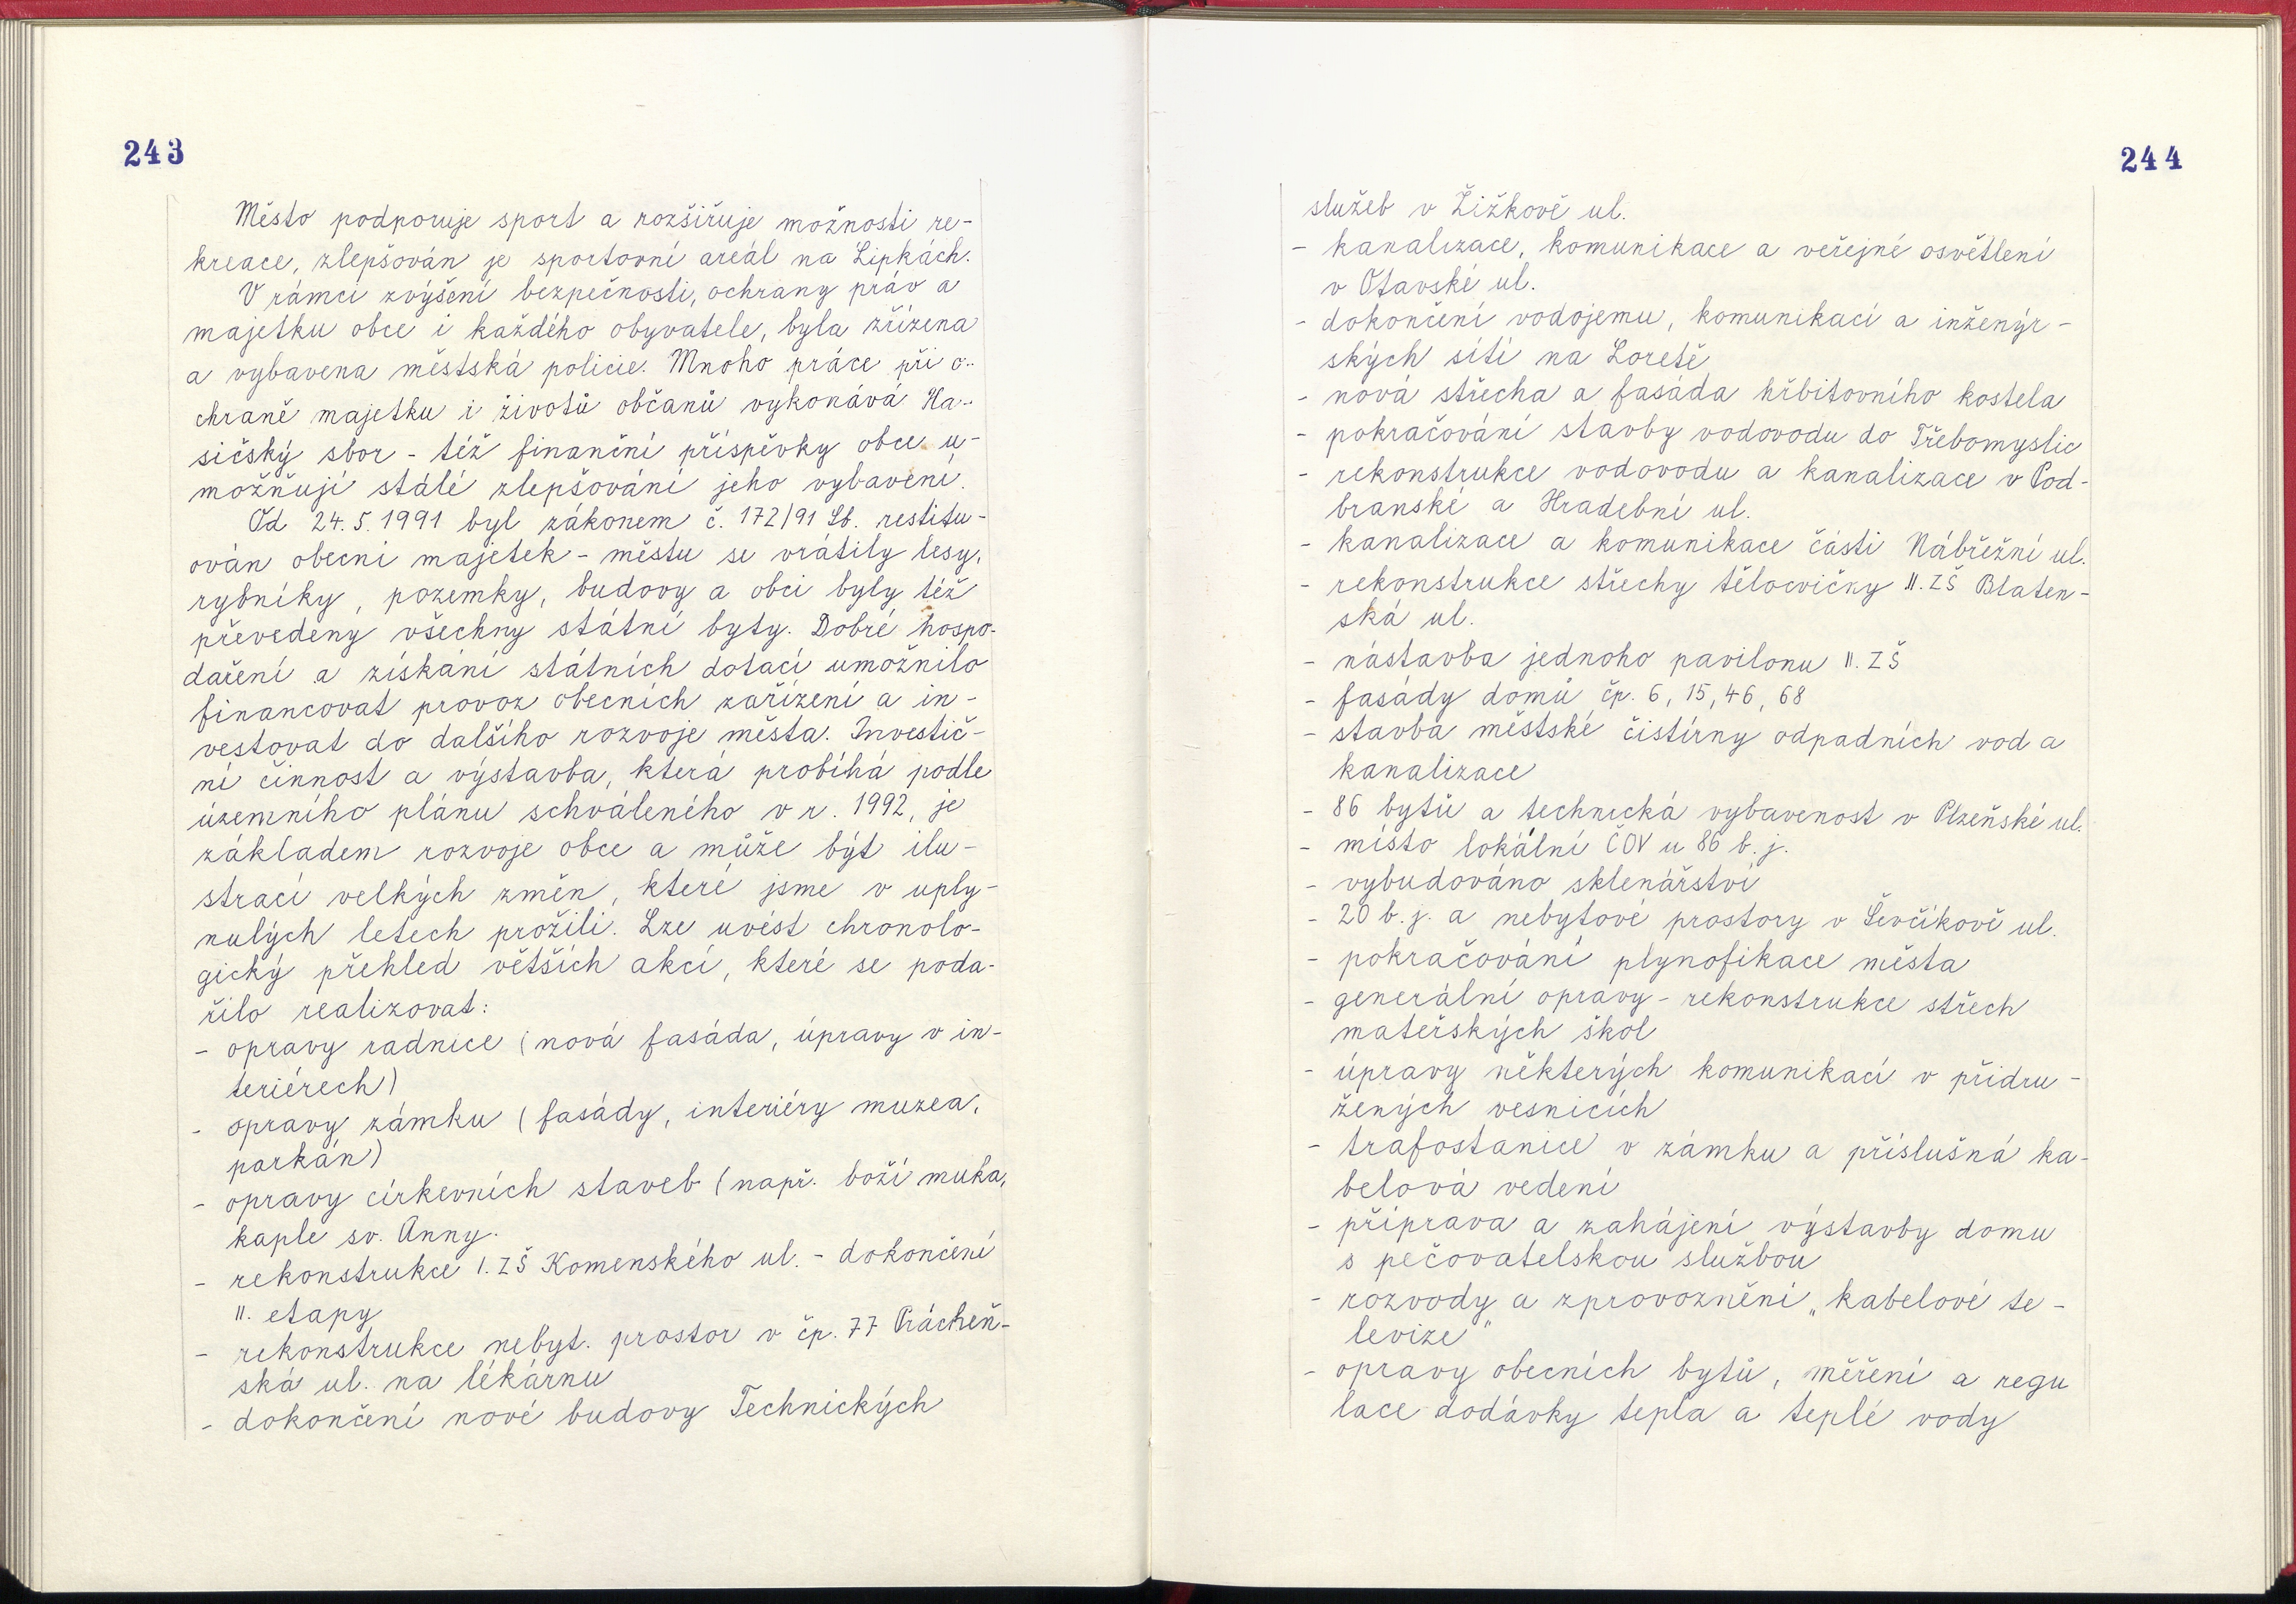 243
Město podporuje sport a rozšiřuje možnosti re-
kreace, zlepšován je sportovní areál na Lipkách.
V rámci zvýšení bezpečnosti, ochrany práv a
majetku obce i každého obyvatele, byla zřízena
a vybavena městská policie. Mnoho práce při o-
chraně majetku i životů občanů vykonává Ha-
sičský sbor - též finanční příspěvky obce u-
možňují stálé zlepšování jeho vybavení.
Od 24.5.1991 byl zákonem č. 172/91 Sb. restitu-
ován obecní majetek - městu se vrátily lesy,
rybníky, pozemky, budovy a obci byly též
převedeny všechny státní byty. Dobré hospo-
daření a získání státních dotací umožnilo
financovat provoz obecních zařízení a in-
vestovat do dalšího rozvoje města. Investič-
ní činnost a výstavba, která probíhá podle
územního plánu schváleného v r. 1992, je
základem rozvoje obce a může být ilu-
strací velkých změn, které jsme v uply-
nulých letech prožili. Lze uvést chronolo-
gický přehled větších akcí, které se poda-
řilo realizovat:
- opravy radnice (nová fasáda, úpravy v in-
teriérech)
- opravy zámku (fasády, interiéry muzea,
parkán)
- opravy církevních staveb (např. boží muka,
kaple sv. Anny.
- rekonstrukce I. ZŠ Komenského ul. - dokončení
II. etapy
- rekonstrukce nebyt. prostor v čp. 77 Prácheň-
ská ul. na lékárnu
- dokončení nové budovy Technických
244
služeb v Žižkově ul.
- kanalizace, komunikace a veřejné osvětlení
v Otavské ul.
- dokončení vodojemu, komunikací a inženýr-
ských sítí na Loretě
- nová střecha a fasáda hřbitovního kostela
- pokračování stavby vodovodu do Třebomyslic
- rekonstrukce vodovodu a kanalizace v Pod-
branské a Hradební ul.
- kanalizace a komunikace části Nábřežní ul.
- rekonstrukce střechy tělocvičny II. ZŠ Blaten-
ská ul.
- nástavba jednoho pavilonu II. ZŠ
- fasády domů čp. 6, 15, 46, 68
- stavba městské čistírny odpadních vod a
kanalizace
- 86 bytů a technická vybavenost v Plzeňské ul.
- místo lokální ČOV u 86 b. j.
- vybudováno sklenářství
- 20 b. j. a nebytové prostory v Ševčíkově ul.
- pokračování plynofikace města
- generální opravy - rekonstrukce střech
mateřských škol
- úpravy některých komunikací v přidru-
žených vesnicích
- trafostanice v zámku a příslušná ka-
belová vedení
- příprava a zahájení výstavby domu
s pečovatelskou službou
- rozvody a zprovoznění „kabelové te-
levize"
- opravy obecních bytů, měření a regu
lace dodávky tepla a teplé vody